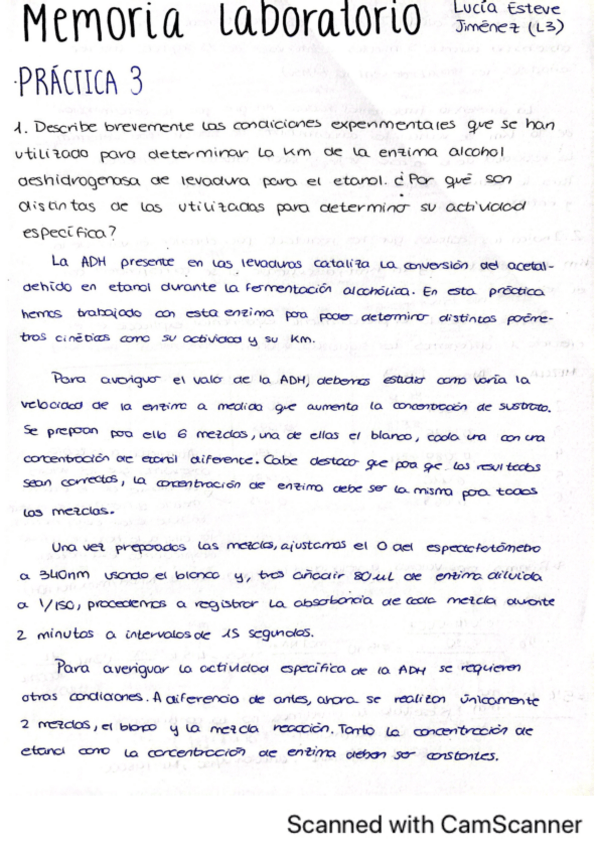 Memoria Laboratorio
Lucía Esteve
Jiménez (L3)
PRÁCTICA 3
1. Describe brevemente las condiciones experimentales que se han
utilizado para determinar la Km de la enzima alcohol
deshidrogenasa de levadura para el etanol. ¿Por qué son
distintas de las utilizadas para determinar su actividad
específica?
La ADH presente en las levaduras cataliza la conversión del acetal-
dehído en etanol durante la fermentación alcohólica. En esta práctica
hemos trabajado con esta enzima para poder determinar distintos paráme-
tros cinéticos como su actividad y su Km.
Para averiguar el valor de la ADH, debemos estudiar como varía la
velocidad de la enzima a medida que aumenta la concentración de sustrato.
Se preparan para ello 6 mezclas, una de ellas el blanco, cada una con una
concentración de etanol diferente. Cabe destacar que para que los resultados
sean correctos, la concentración de enzima debe ser la misma para todas
las mezclas.
Una vez preparadas las mezclas, ajustamos el 0 del espectofotómetro
a 340nm usando el blanco y, tras añadir 80 µL de enzima diluida
a 1/150, procedemos a registrar la absorbancia de cada mezcla durante
2 minutos a intervalos de 15 segundos.
Para averiguar la actividad específica de la ADH se requieren
otras condiciones. A diferencia de antes, ahora se realizan únicamente
2 mezclas, el blanco y la mezcla reacción. Tanto la concentración de
etanol como la concentración de enzima deben ser constantes.
Scanned with CamScanner